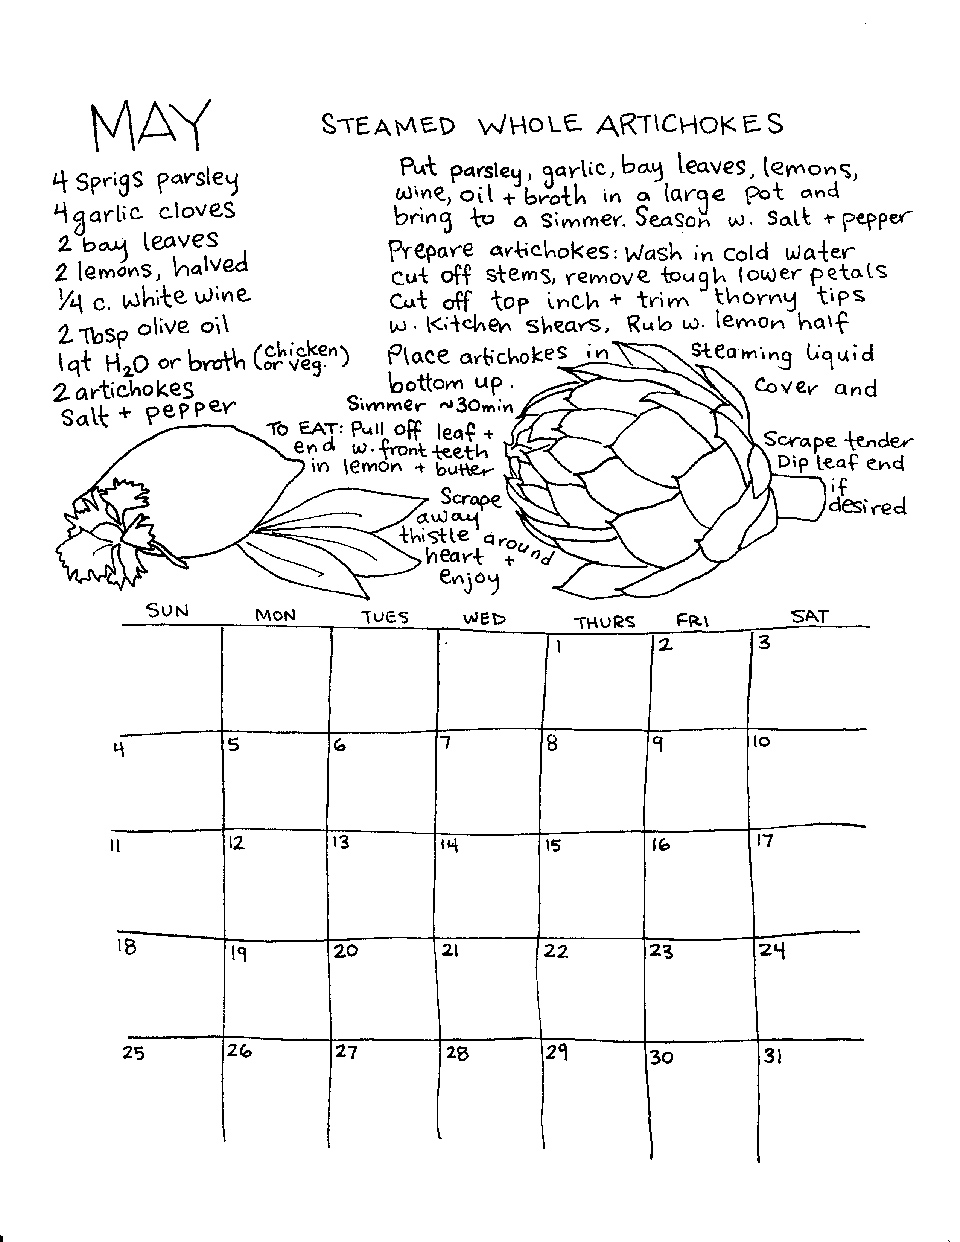 MAY
STEAMED WHOLE ARTICHOKES
4 sprigs parsley
4 garlic cloves
2 bay leaves
2 lemons, halved
1/4 c. white wine
2 Tbsp olive oil
1 qt H2O or broth (chicken or veg.)
2 artichokes
Salt + pepper
Put parsley, garlic, bay leaves, lemons,
wine, oil + broth in a large pot and
bring to a simmer. Season w. Salt + pepper
Prepare artichokes: Wash in cold water
cut off stems, remove tough lower petals
Cut off top inch + trim thorny tips
w. Kitchen shears, Rub w. lemon half
Place artichokes in steaming liquid
bottom up. Cover and
Simmer ~30min
TO EAT: Pull off leaf + Scrape tender
end w. front teeth Dip leaf end
in lemon + butter if
desired
Scrape
away
thistle around
heart +
enjoy
SUN MON TUES WED THURS FRI SAT
1 2 3
4 5 6 7 8 9 10
11 12 13 14 15 16 17
18 19 20 21 22 23 24
25 26 27 28 29 30 31